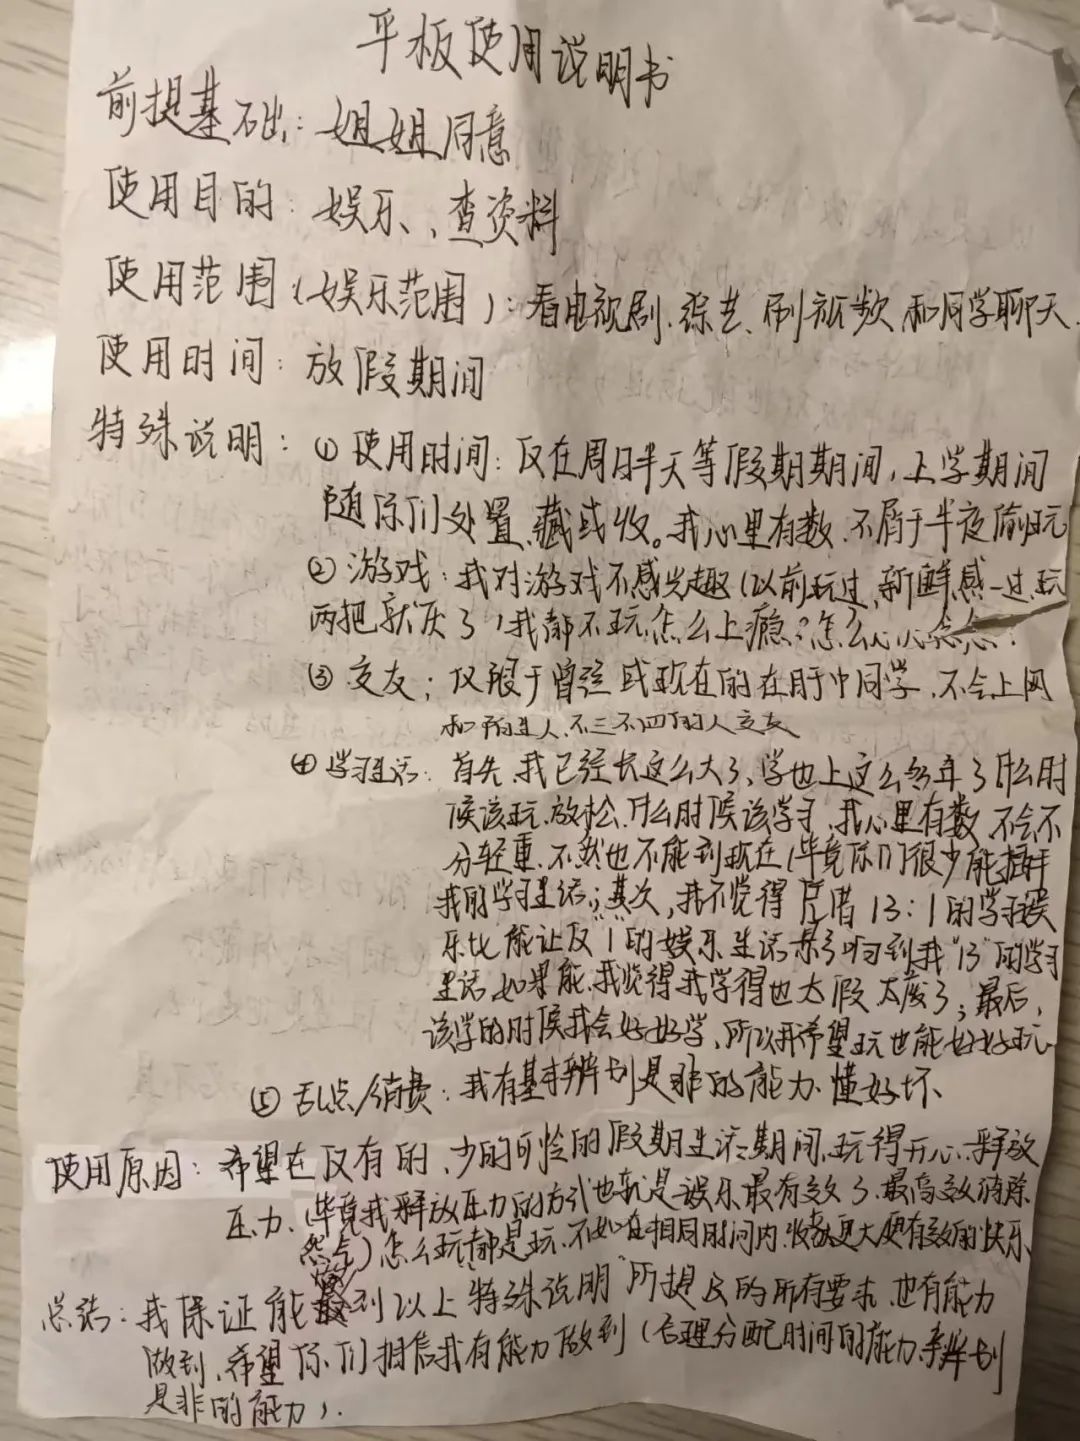 平板使用说明书
前提基础：姐姐同意
使用目的：娱乐、查资料
使用范围（娱乐范围）：看电视剧、综艺、刷视频、和同学聊天、
使用时间：放假期间
特殊说明：①使用时间：仅在周日半天等假期期间，上学期间
随你们处置、藏或收。我心里有数、不屑于半夜偷玩
②游戏：我对游戏不感兴趣（以前玩过、新鲜感一过、玩
两把就厌了）我都不玩、怎么上瘾？怎么
③交友：仅限于曾经或现在的在用于中同学、不会上网
和陌生人、不三不四的人交友
④学习生活：首先、我已经长这么大了、学也上这么多年了什么时
候该玩、放松、什么时候该学习、我心里有数、不会不
分轻重、不然也不能到现在（毕竟你们很少能插手
我的学习生活；其次，我不觉得凭借13：1的学习娱
乐比能让仅1的娱乐生活影响到我“13”的学习
生活、如果能、我觉得我学得也太假太废了；最后，
该学的时候我会好好学、所以我希望玩也能好好玩
⑤乱点/消费：我有基本辨别是非的能力、懂好坏
使用原因：希望在仅有的、少的可怜的假期生活期间、玩得开心、释放
压力、（毕竟我释放压力的方式也就是娱乐最有效了、最高效消除
怎么玩都是玩、不如在相同时间内、收获更大更有效的快乐
总结：我保证能做到以上特殊说明所提及的所有要求、也有能力
做到、希望你们相信我有能力做到（合理分配时间的能力、辨别
是非的能力）.